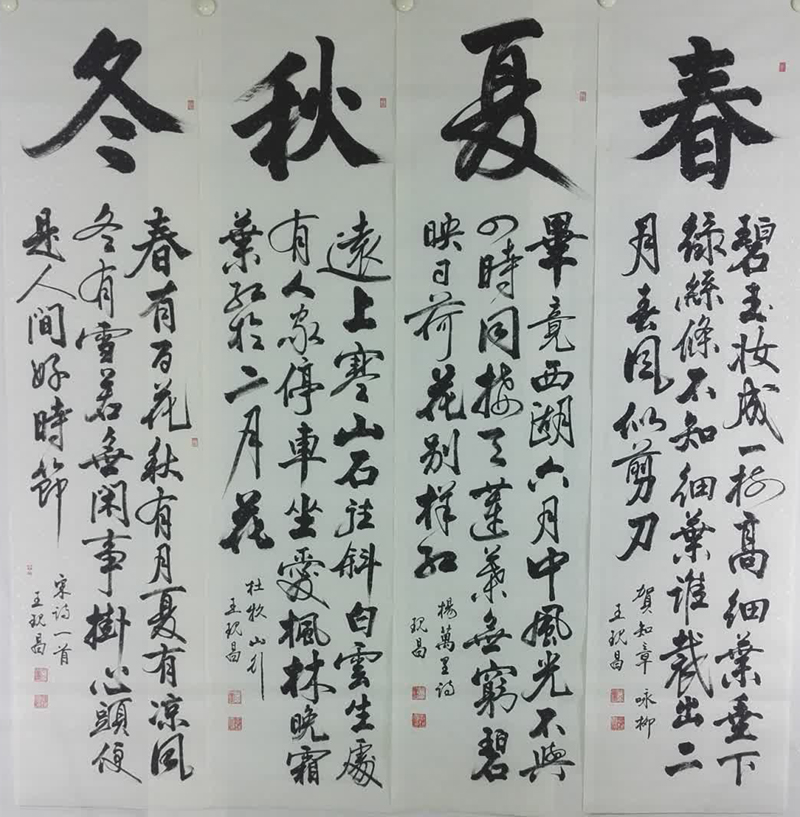 春
碧玉妆成一樹高細葉垂下
綠絲條不知細葉誰裁出二
月春風似剪刀
賀知章 咏柳
夏
畢竟西湖六月中風光不與
四時同接天蓮葉無窮碧
映日荷花别樣紅
楊萬里詩
秋
遠上寒山石径斜白雲生處
有人家停車坐愛楓林晚霜
葉紅於二月花
杜牧山行
冬
春有百花秋有月夏有凉風
冬有雪若無闲事掛心頭便
是人間好時節
宋詩一首